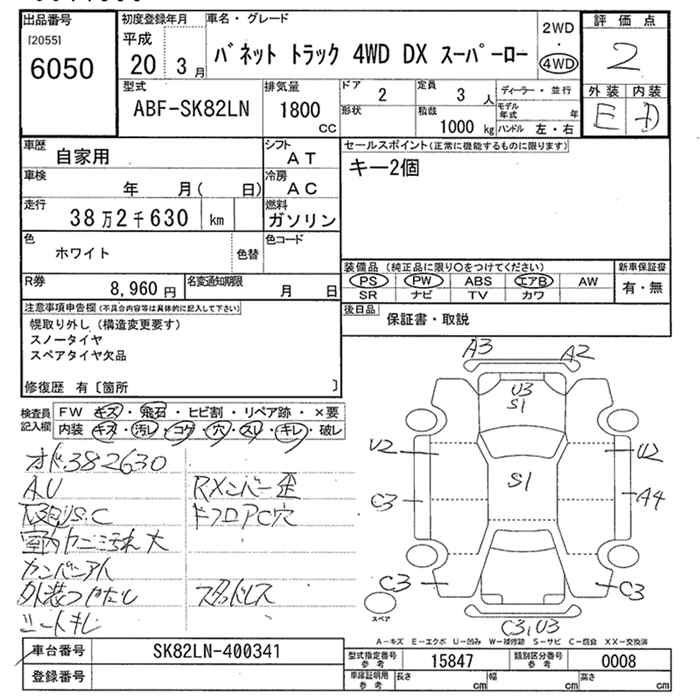 出品番号
[2055]
6050
初度登録年月
平成
20 3 月
車名・グレード
バネット トラック 4WD DX スーパーロー
2WD
・
4WD
評価点
2
外装 内装
E D
型式
ABF-SK82LN
排気量
1800
CC
ドア
2
形状
定員
3 人
積載
1000 kg
ディーラー・並行
モデル年式 年
ハンドル 左・右
車歴
自家用
シフト
AT
車検
年 月( 日)
冷房
AC
走行
38万2千630 km
燃料
ガソリン
色
ホワイト
色替
色コード
R券
8,960 円
名変通知期限
月 日
セールスポイント(正常に機能するものに限ります)
キー2個
装備品 (純正品に限り○をつけてください)
PS PW ABS エアB AW
SR ナビ TV カワ
新車保証書
有・無
後日品
保証書・取説
注意事項申告欄(不具合内容等は具体的に記入して下さい)
幌取り外し(構造変更要す)
スノータイヤ
スペアタイヤ欠品
修復歴 有〔箇所 〕
検査員記入欄
FW キズ・飛石・ヒビ割・リペア跡・×要
内装 キズ・汚レ・コゲ・穴・スレ・キレ・破レ
オド382630
A,U
Rメンバー歪
ドフロアC穴
S.C
室内カニ汚れ大
外装つやなし
シートキレ
車台番号
SK82LN-400341
登録番号
A3
A2
U3
S1
U2
U2
S1
C3
A4
C3
C3
C3,U3
スペア
A－キズ E－エクボ U－凹み W－補修跡 S－サビ C－腐食 XX－交換済
型式指定番号
参考
15847
類別区分番号
参考
0008
車庫証明用
参考
長さ cm
幅 cm
高さ cm